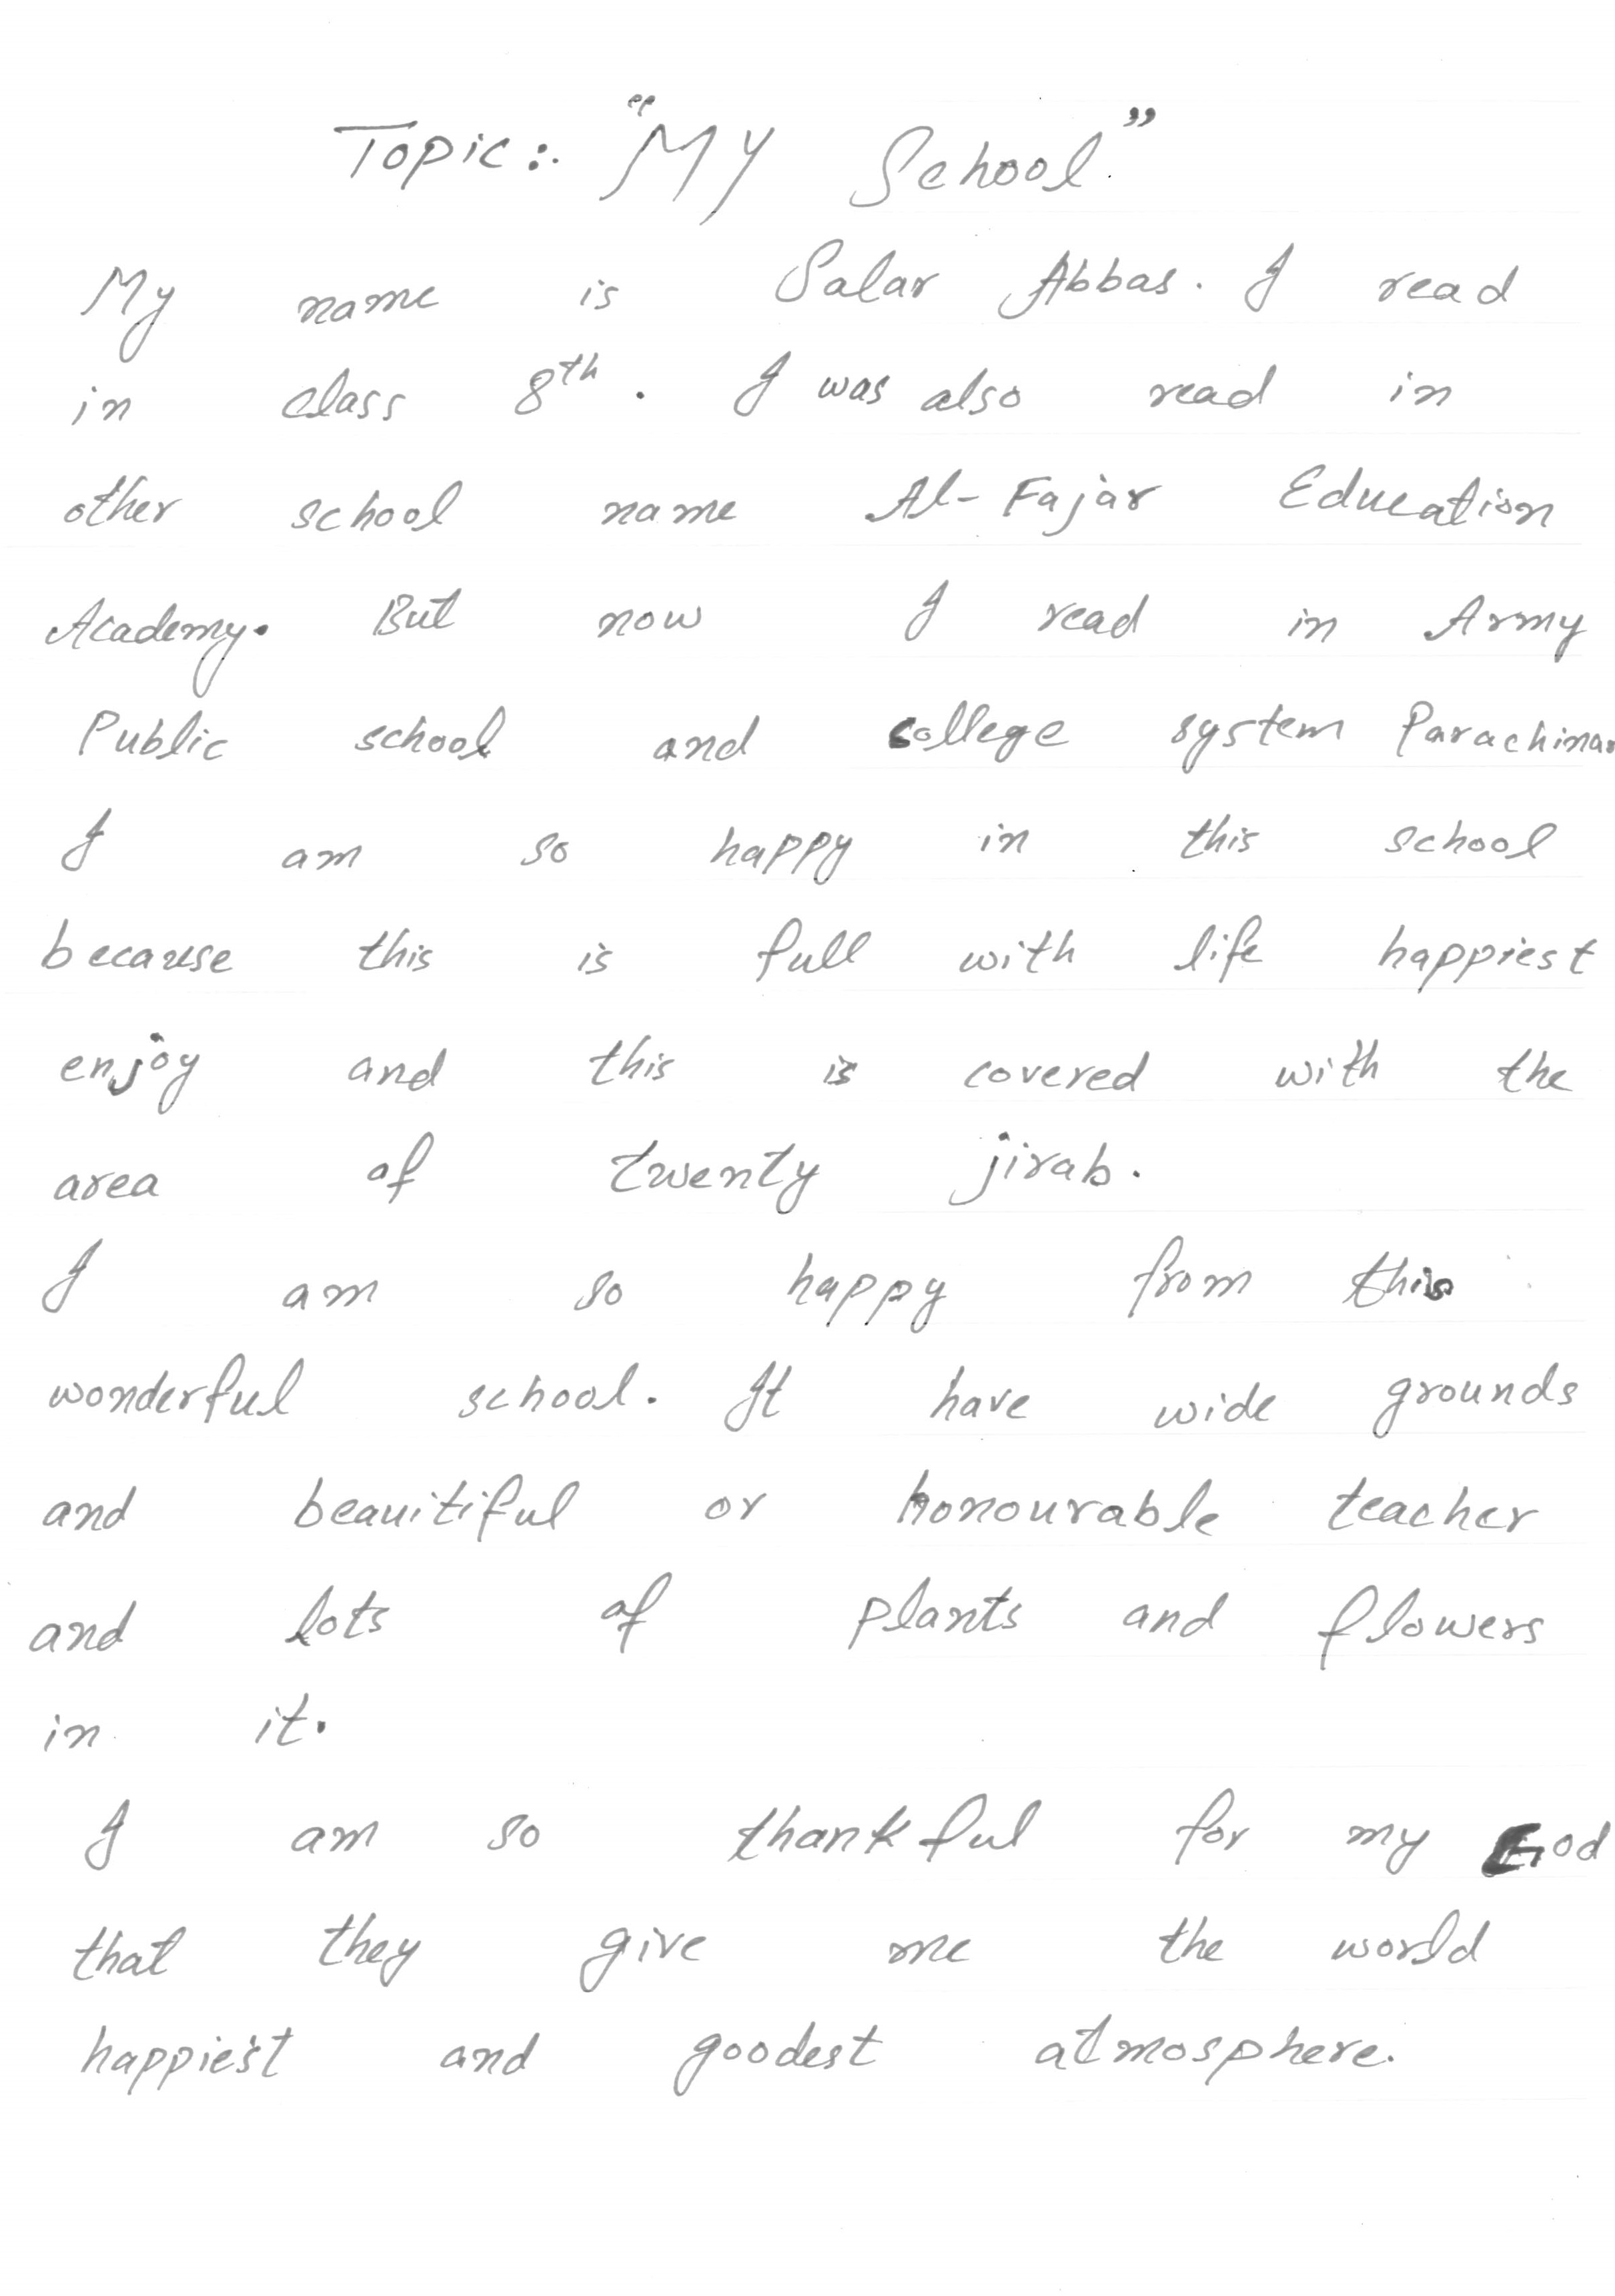 Topic:. "My School."
My name is Salar Abbas. I read
in class 8th. I was also read in
other school name Al-Fajar Education
Academy. But now I read in Army
Public school and college system Parachinar
I am so happy in this school
because this is full with life happiest
enjoy and this is covered with the
area of twenty jirab.
I am so happy from this
wonderful school. It have wide grounds
and beauitiful or honourable teacher
and lots of plants and flowers
in it.
I am so thankful for my God
that they give me the world
happiest and goodest atmosphere.